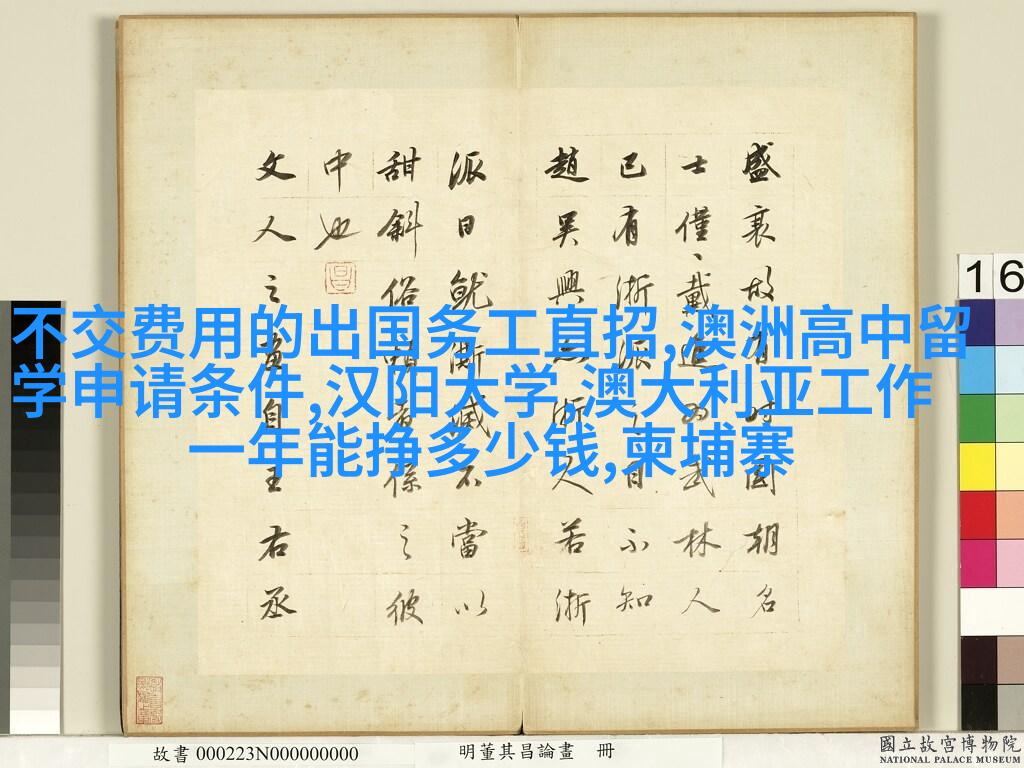 不交费用的出国务工直招,澳洲高中留
学申请条件,汉阳大学,澳大利亚工作
一年能挣多少钱,柬埔寨
盛衰故有時國朝名
士僅、戴進為武林人
已有浙派之目不知
趙吳興亦浙人若浙
派日就澌滅不當以
甜斜俗賴者係之彼
中也
文人之畫自王右丞
16
故書 000223N000000000
明董其昌論畫 冊
國立故宮博物院
NATIONAL PALACE MUSEUM